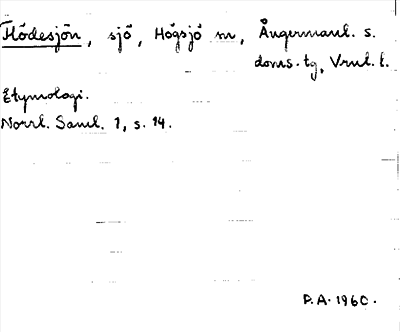 Flödesjön, sjö, Högsjö sn, Ångermanl. s.
doms.tg, Vrnl. l.
Etymologi.
Norrl. Saml. 1, s. 14.
P.A. 1960.